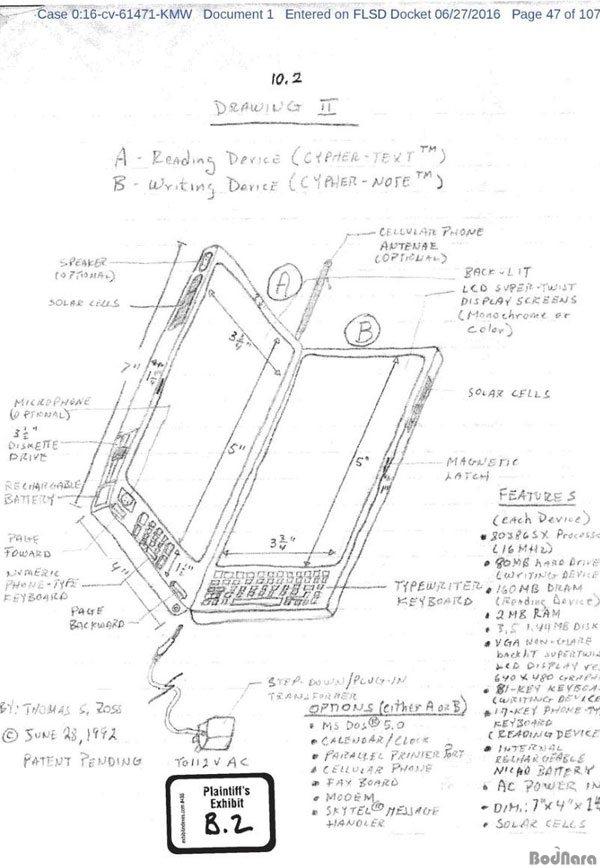 Case 0:16-cv-61471-KMW Document 1 Entered on FLSD Docket 06/27/2016 Page 47 of 107
10.2
DRAWING II
A - Reading Device (CYPHER-TEXT™)
B - Writing Device (CYPHER-NOTE™)
CELLULAR PHONE
ANTENAE
(OPTIONAL)
SPEAKER
(OPTIONAL)
SOLAR CELLS
A
BACK-LIT
LCD SUPER-TWIST
DISPLAY SCREENS
(Monochrome or
Color)
B
3 3/4"
7"
SOLAR CELLS
MICROPHONE
(OPTIONAL)
3 1/2"
DISKETTE
DRIVE
5"
5"
MAGNETIC
LATCH
RECHARGABLE
BATTERY
FEATURES
(each Device)
• 80386SX Processo
(16 MHz)
• 80MB HARD DRIVE
(WRITING DEVICE
• 160MB DRAM
(Reading Device)
• 2MB RAM
• 3.5 1.44MB DISK
• VGA NON-GLARE
backlit SUPERTWI
LCD DISPLAY
640 X 480 GRAPHI
• 81-KEY KEYBOA
(WRITING DEVICE
• 17-KEY PHONE-TY
KEYBOARD
(READING DEVICE
• INTERNAL
RECHARGEABLE
NICAD BATTERY
• AC POWER IN
• DIM.: 7"x 4"x
• SOLAR CELLS
PAGE
FOWARD
4"
1 1/2"
3 3/4"
NUMERIC
PHONE-TYPE
KEYBOARD
TYPEWRITER
KEYBOARD
PAGE
BACKWARD
STEP-DOWN/PLUG-IN
TRANSFORMER
OPTIONS (either A or B)
• MS DOS® 5.0
• CALENDAR/CLOCK
• PARALLEL PRINTER PORT
• CELLULAR PHONE
• FAX BOARD
• MODEM
• SKYTEL® MESSAGE
HANDLER
BY: THOMAS S. ROSS
© JUNE 28, 1992
PATENT PENDING
TO 112 V AC
Plaintiff's
Exhibit
B.2
BodNara